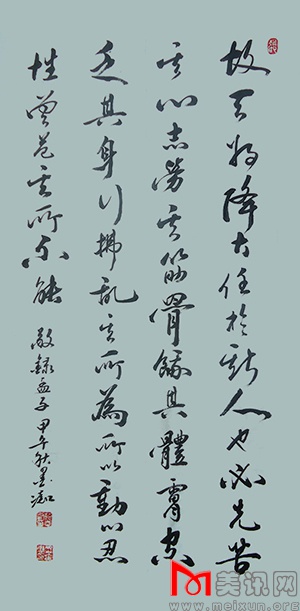 故天将降大任於斯人也必先苦
其心志勞其筋骨餓其體膚空
乏其身行拂亂其所為所以動心忍
性曾益其所不能
敬録孟子甲午秋墨
美讯网
www.meixun.org